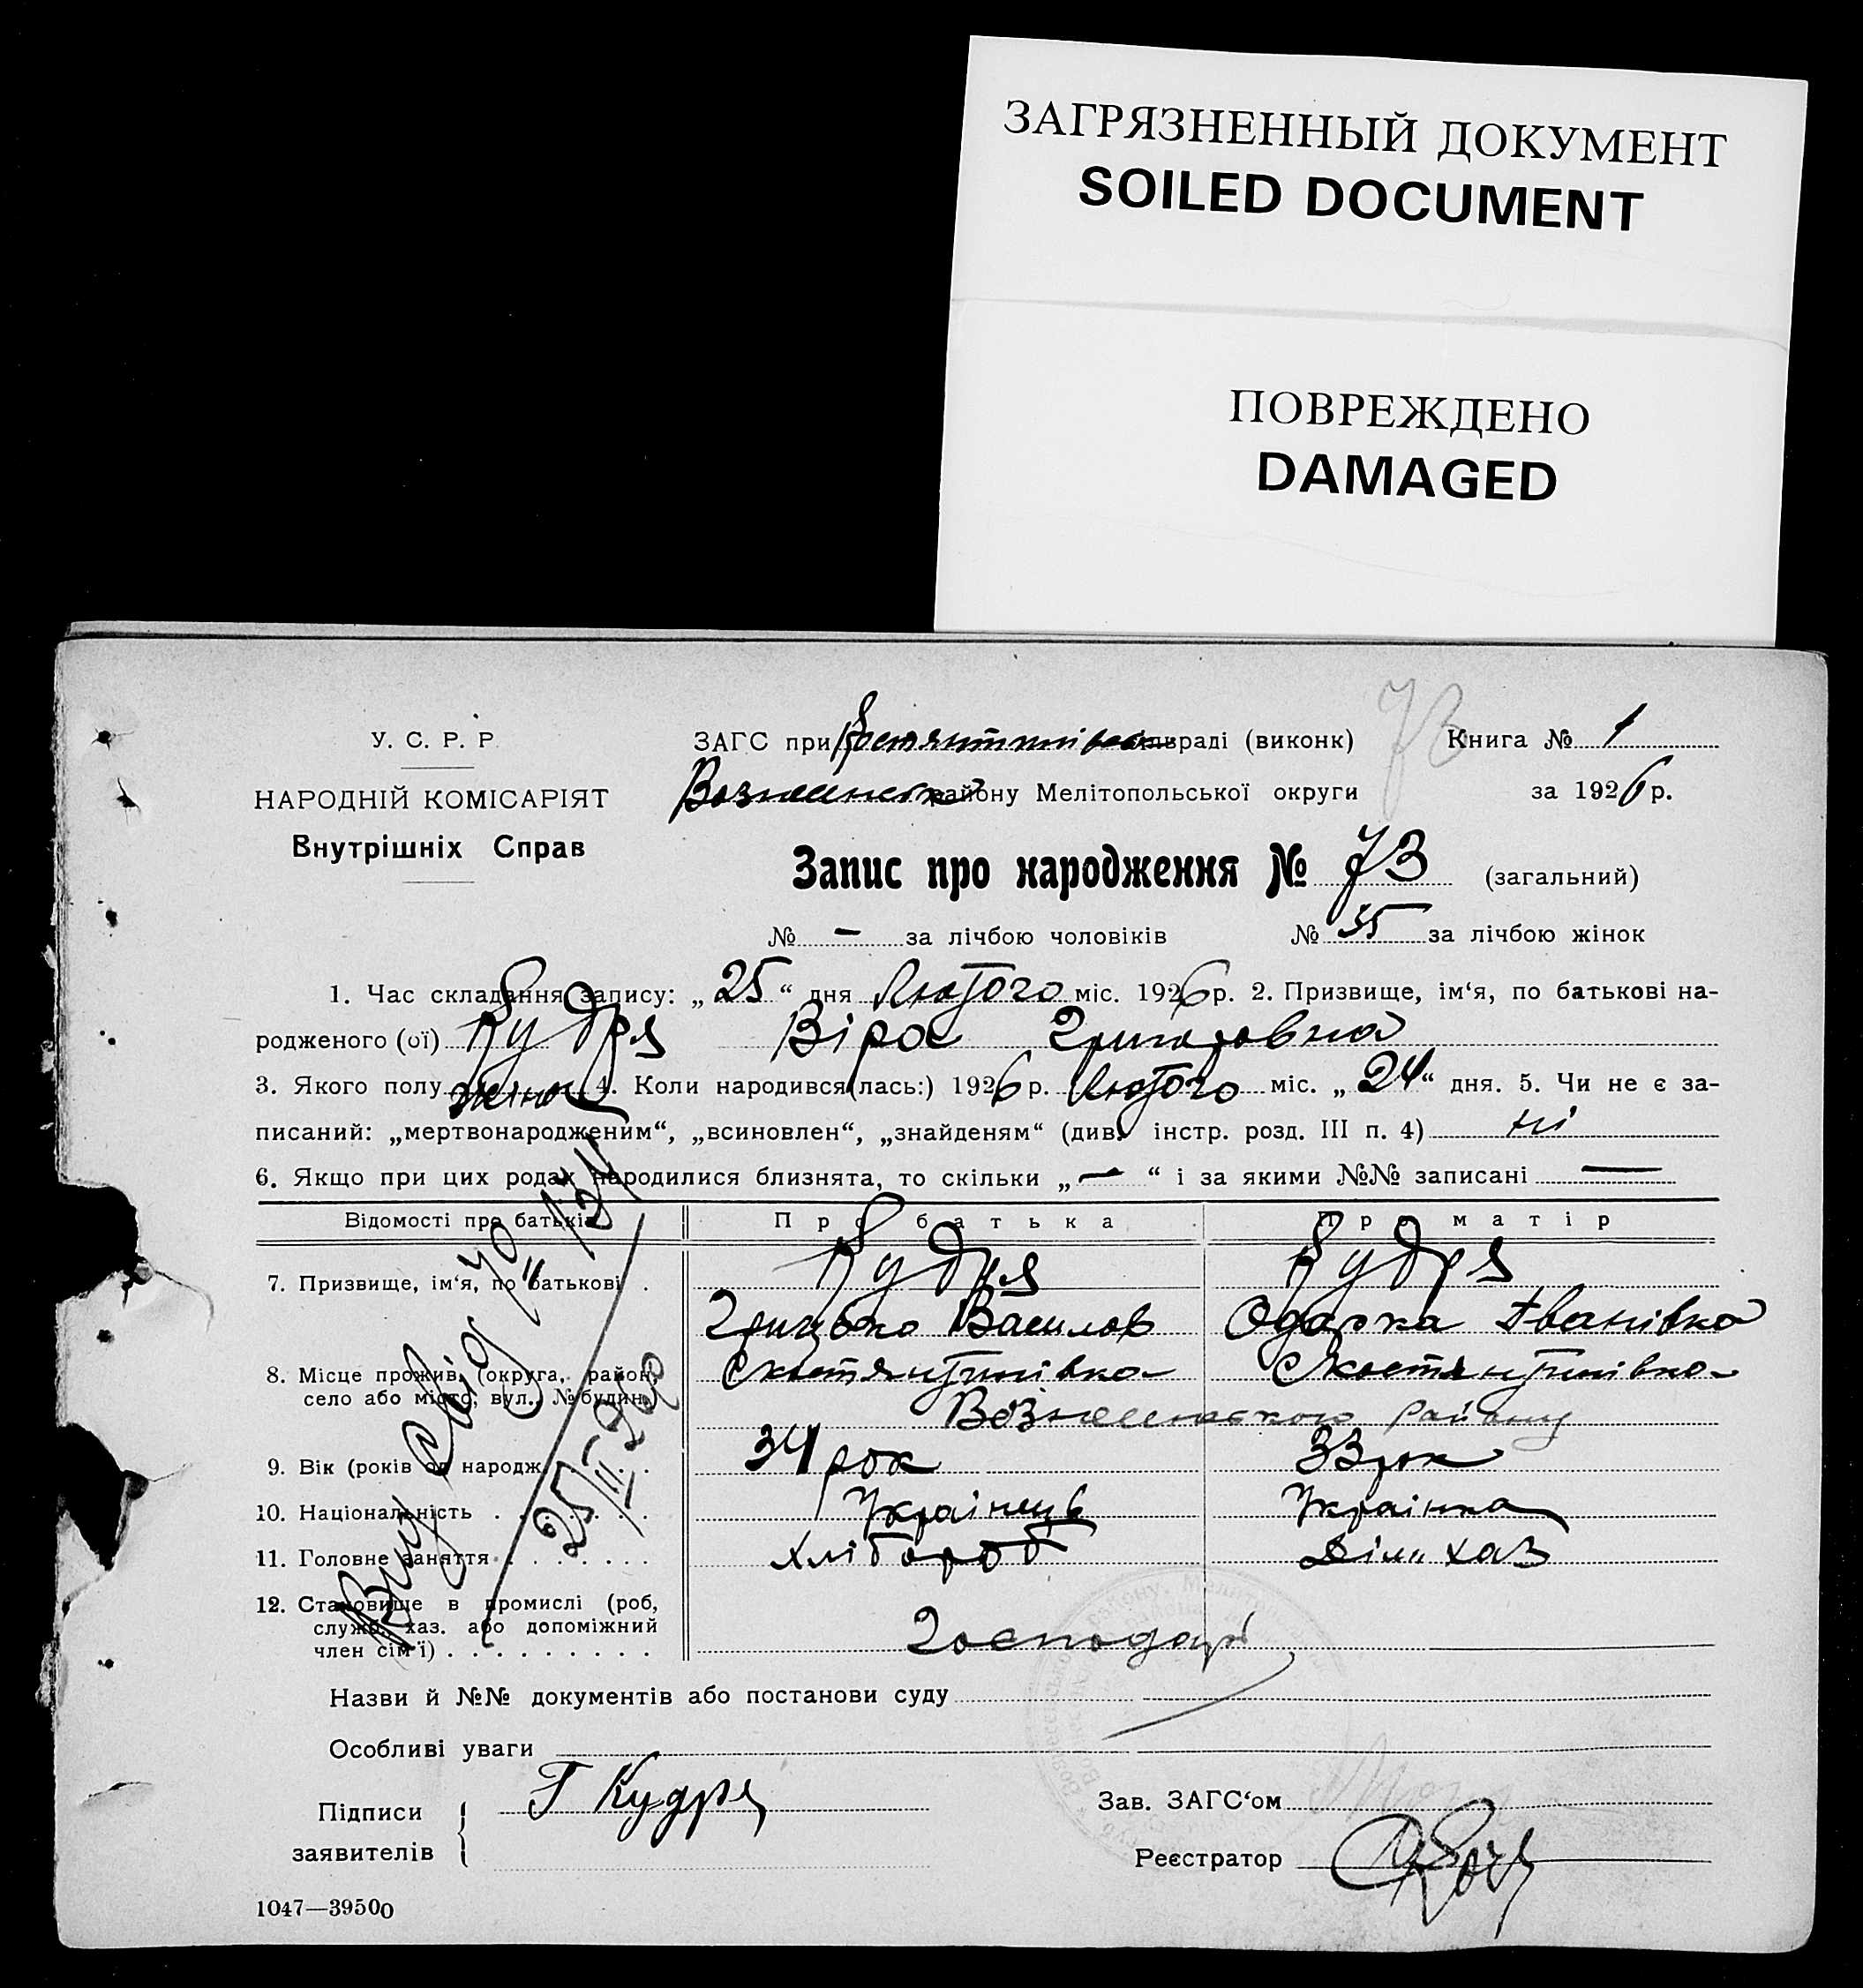 ЗАГРЯЗНЕННЫЙ ДОКУМЕНТ
SOILED DOCUMENT
ПОВРЕЖДЕНО
DAMAGED
У. С. Р. Р.
НАРОДНІЙ КОМІСАРІЯТ
Внутрішніх Справ
ЗАГС при Костянтинівськ раді (виконк)
73
Книга № 1
Вознесенськ району Мелітопольської округи
за 1926 р.
Запис про народження № 73 (загальний)
№ — за лічбою чоловіків № 35 за лічбою жінок
1. Час складання запису: „25“ дня Лютого міс. 1926 р. 2. Призвище, ім‘я, по батькові на-
родженого (ої) Кудря Віра Григоровна
3. Якого полу жіноч 4. Коли народився(лась:) 1926 р. Лютого міс. „24“ дня. 5. Чи не є за-
писаний: „мертвонародженим“, „всиновлен“, „знайденям“ (див. інстр. розд. III п. 4) ні
6. Якщо при цих родах народилися близнята, то скільки „—“ і за якими №№ записані —
Відомості про батьків Про батька Про матір
7. Призвище, ім‘я, по батькові . Кудря Кудря
Грицько Василов Одарка Іванівна
8. Місце прожив. (округа, район, с Костянтинівка с Костянтинівка
село або місто, вул., № будин. Вознесенського району
9. Вік (років од народж. 34 рок 33 рок
10. Національність Українець Українка
11. Головне заняття Хлібороб Дім. хаз
12. Становище в промислі (роб,
служб. хаз. або допоміжний Господарі
член сім‘ї)
25/II
Назви й №№ документів або постанови суду
Особливі уваги
Підписи Г Кудря
заявителів
Зав. ЗАГС‘ом
Реєстратор
1047—39500